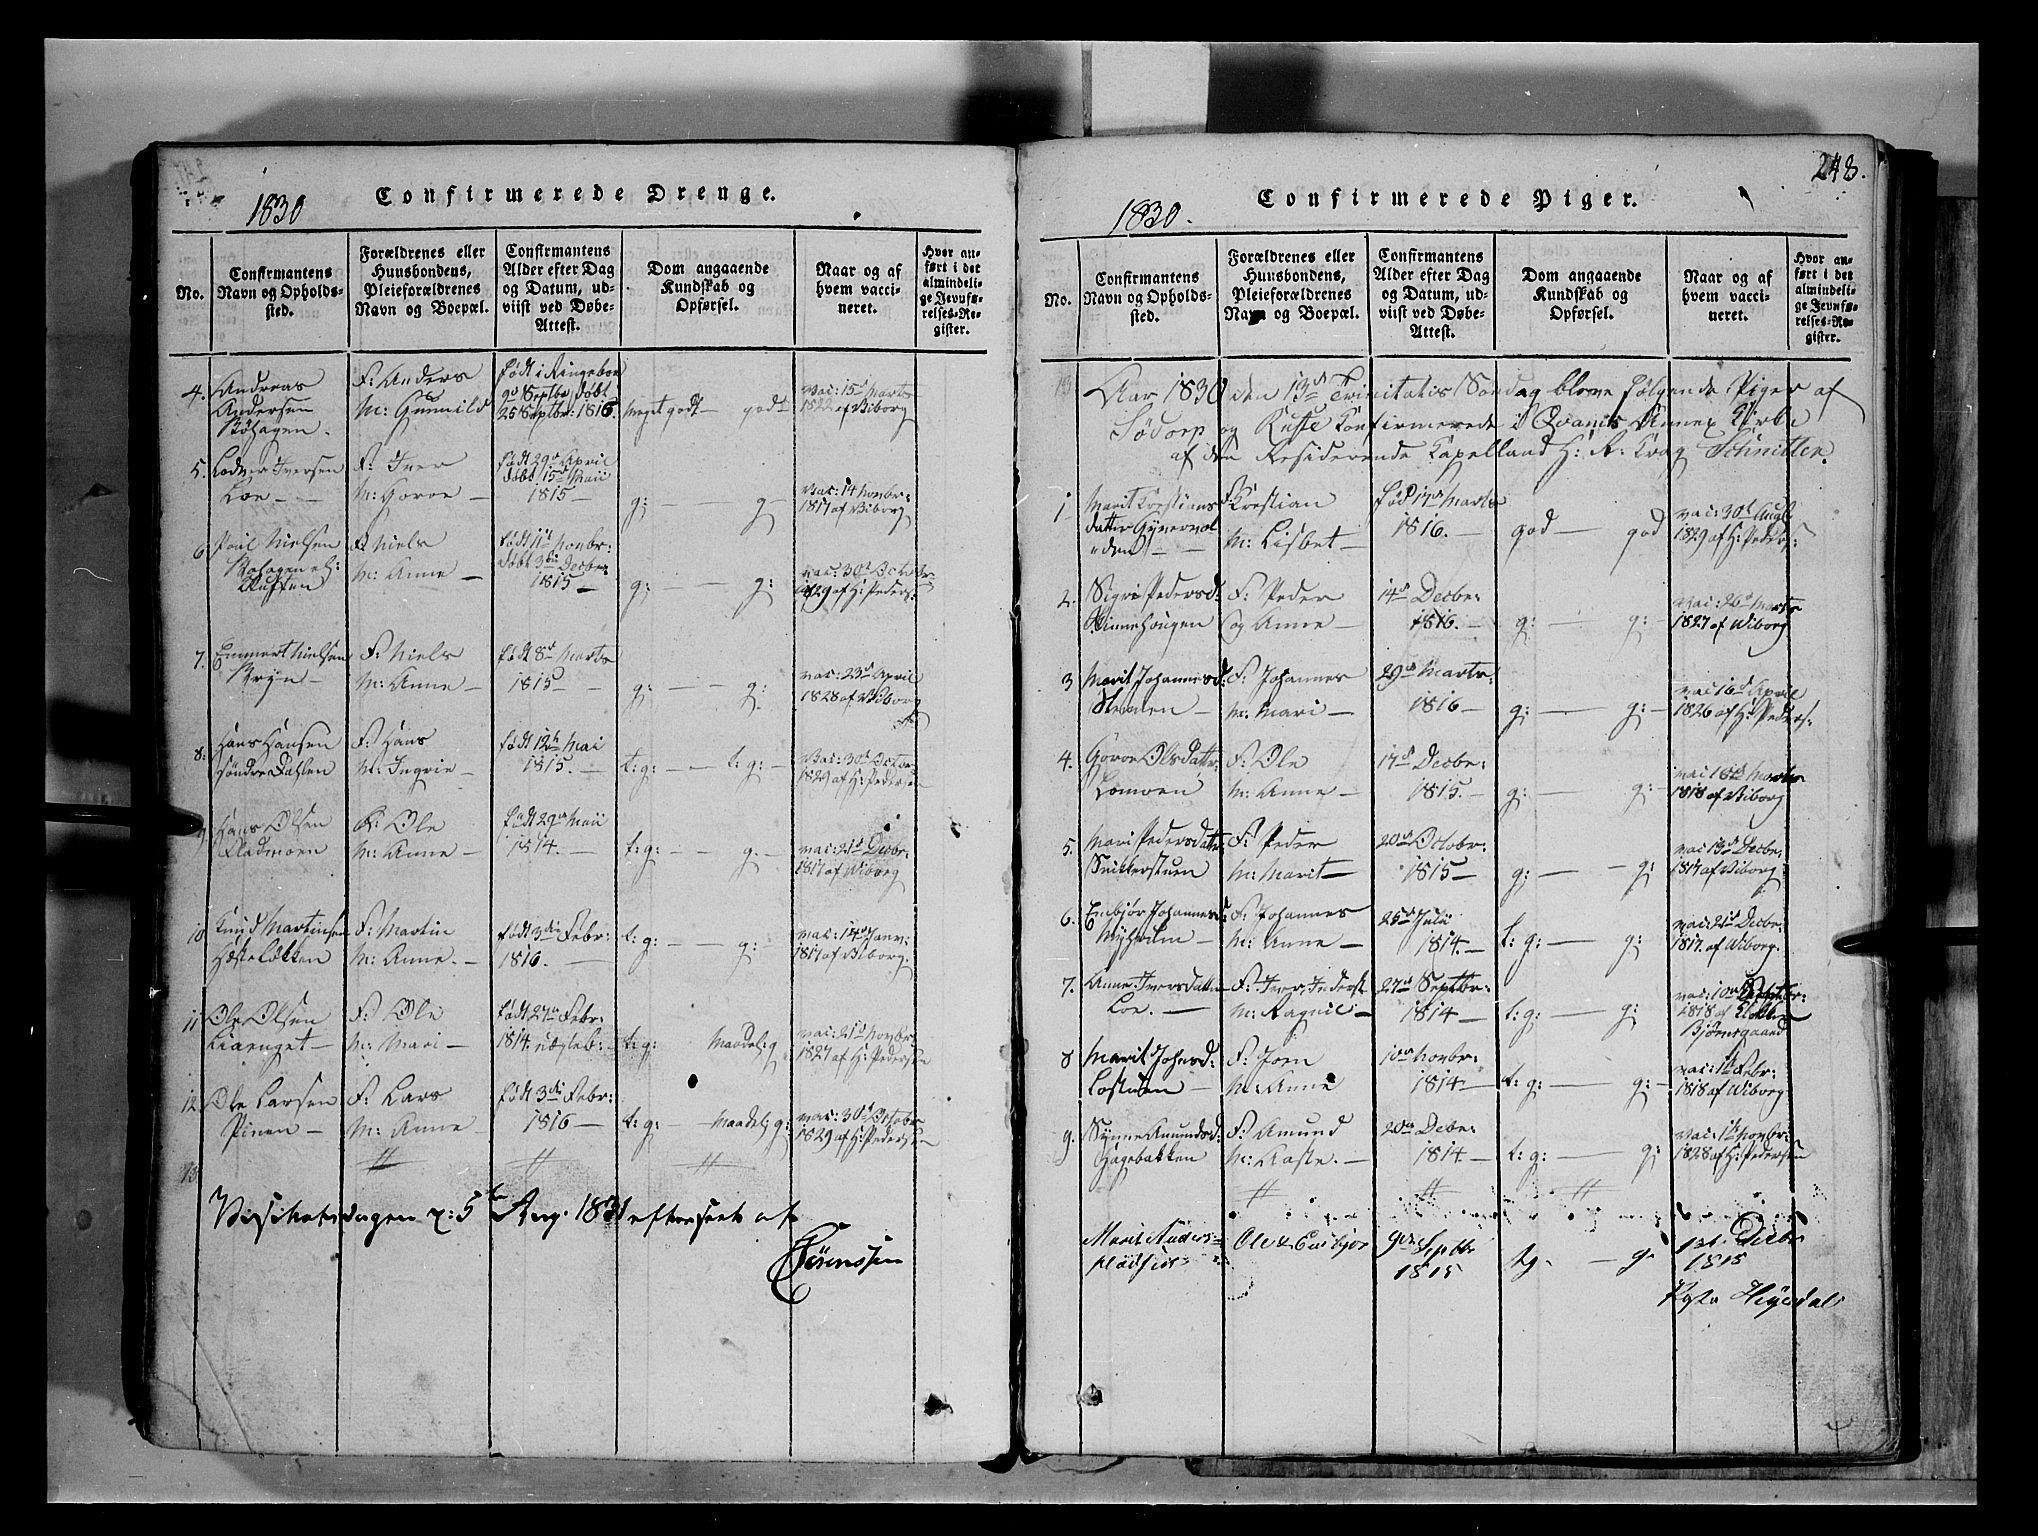 1830
Confirmerede Drenge.
No.
Confirmantens
Navn og Opholds-
sted.
Forældrenes eller
Huusbondens,
Pleieforældrenes
Navn og Boepæl.
Confirmantens
Alder efter Dag
og Datum, ud-
viist ved Døbe-
Attest.
Dom angaaende
Kundskab og
Opførsel.
Naar og af
hvem vacci-
neret.
Hvor an-
ført i det
almindeli-
ge Jevnfø-
relses-Re-
gister.
4. Andreas
Andersen
F: Anders
M: Gunnild
født i Ringeboe
9de Septbr. døbt
25 Septbr: 1815.
meget godt — godt
vac: 15d Marts
1822 af Wiborg
5. Iversen
Loe —
F: Iver
M: Goroe —
født 29de April
døbt 15de Maii
1815 —
g: — g:
vac: 14 Novbr:
1817 af Wiborg
6. Poul Nielsen
F: Niels
M: Anne —
født 11te Novbr:
døbt 3die Decbr:
1815 —
g: — g:
vac: 30d Octobr
1829 af H: Peders:
7. Emmert Nielsen
Bryn —
F: Niels
M: Anne —
født 8de Marts
1815 —
g: — g:
vac: 23d April
1828 af Wiborg
8. Hans Hansen
søndre Dahlen
F: Hans
M: Ingrie —
født 12te Mai
1815. —
t: g: — t: g: —
vac: 30d Octbr
1829 af H: Pedersen
9. Hans Olsen
Fladmoen
F: Ole
M: Anne —
født 29de Maii
1814. —
t: g: — g: —
vac: 21d Decbr:
1817 af Wiborg
10. Knud Martinsen
Hesteløkken
F: Martin
M: Anne. —
født 3die Febr:
1816. —
t: g: — g: —
vac: 14d Janv:
1817 af Wiborg.
11. Ole Olsen
Liaenget —
F: Ole
M: Mari —
født 27de Febr:
1814.
t: g: Maadel: g:
vac: 21d Novbr:
1827 af H: Pedersen
12. Ole Larsen
Pinen —
F: Lars
M: Anne —
født 3die Febr:
1816 —
t: g: — Maadel: g:
vac: 30d Octobr
1829 af H: Pedersen
13.
5te Aug. 1831 efterseet af
Sørenssen
248.
1830.
Confirmerede Piger.
No.
Confirmantens
Navn og Opholds-
sted.
Forældrenes eller
Huusbondens,
Pleieforældrenes
Navn og Boepæl.
Confirmantens
Alder efter Dag
og Datum, ud-
viist ved Døbe-
Attest.
Dom angaaende
Kundskab og
Opførsel.
Naar og af
hvem vacci-
neret.
Hvor an-
ført i det
almindeli-
ge Jevnfø-
relses-Re-
gister.
Aar 1830 den 13de Trinitatis Søndag bleve følgende Piger af
Sødorp og Ruste Confirmerede i Qvams Annex Kirke
af den Residerende Kapelland H: R: Krag Schnitler.
1 Marit Krestians
datter
F: Krestian
M: Lisbet —
født 17de Marts
1816. —
god — god
vac: 30d Augt
1829 af H: Peders:
2. Sigri Pedersd:
Vinnehougen
F: Peder
og Anne —
14de Decbr:
1816. —
g: — g:
vac: 26d Marts
1827 af Wiborg
3 Marit Johannesd:
F: Johannes
M: Mari —
29de Marts:
1816 —
g: — g: —
vac 16d April
1826 af H: Peders:
4. Goroe Olsdatter
Lomoen
F: Ole
M: Anne —
17de Decbr:
1815. —
g: — g: —
vac 18d Marts
1818 af Wiborg
5. Mari Pedersdatter
Snikkerstuen
F: Peder
M: Marit —
20de Octobr:
1815 —
g: — g:
vac 13d Decbr:
1817 af Wiborg
6. Embjør Johannesd:
F: Johannes
M: Anne —
25de Julii
1814. —
t: g: — g:
vac: 21d Decbr:
1817. af Wiborg.
7. Anne Iversdatter
Loe. —
F: Iver
M: Ragnil —
27de Septbr:
1814 —
t: g: — g:
vac: 10d
1818 af
Bjørnsgaard
8 Marit Johnsd:
Lostuen —
F: Joen
M: Anne
10de Novbr:
1814 —
t: g: — g: —
vac: 1d Febr:
1818 af Wiborg
9. Synne Amundsd:
Hagebakken
F: Amund
M: Aaste. —
20de Decbr:
1814. —
t: g: — g:
vac: 1te Novbr:
1828 af H: Pedersen
Marit Anders-
Ole & Embjør
9de Septbr
1815
tg. — g.
1st. Decbr
1818